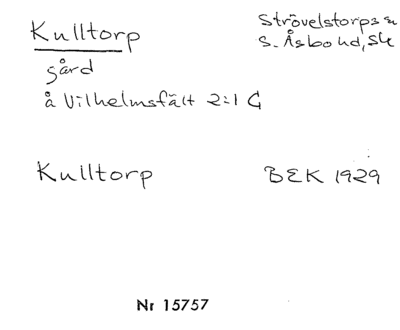 Kulltorp
Strövelstorps sn
S. Åsbo hd, Sk
gård
å Vilhelmsfält 2:1 G
Kulltorp
BEK 1929
Nr 15757